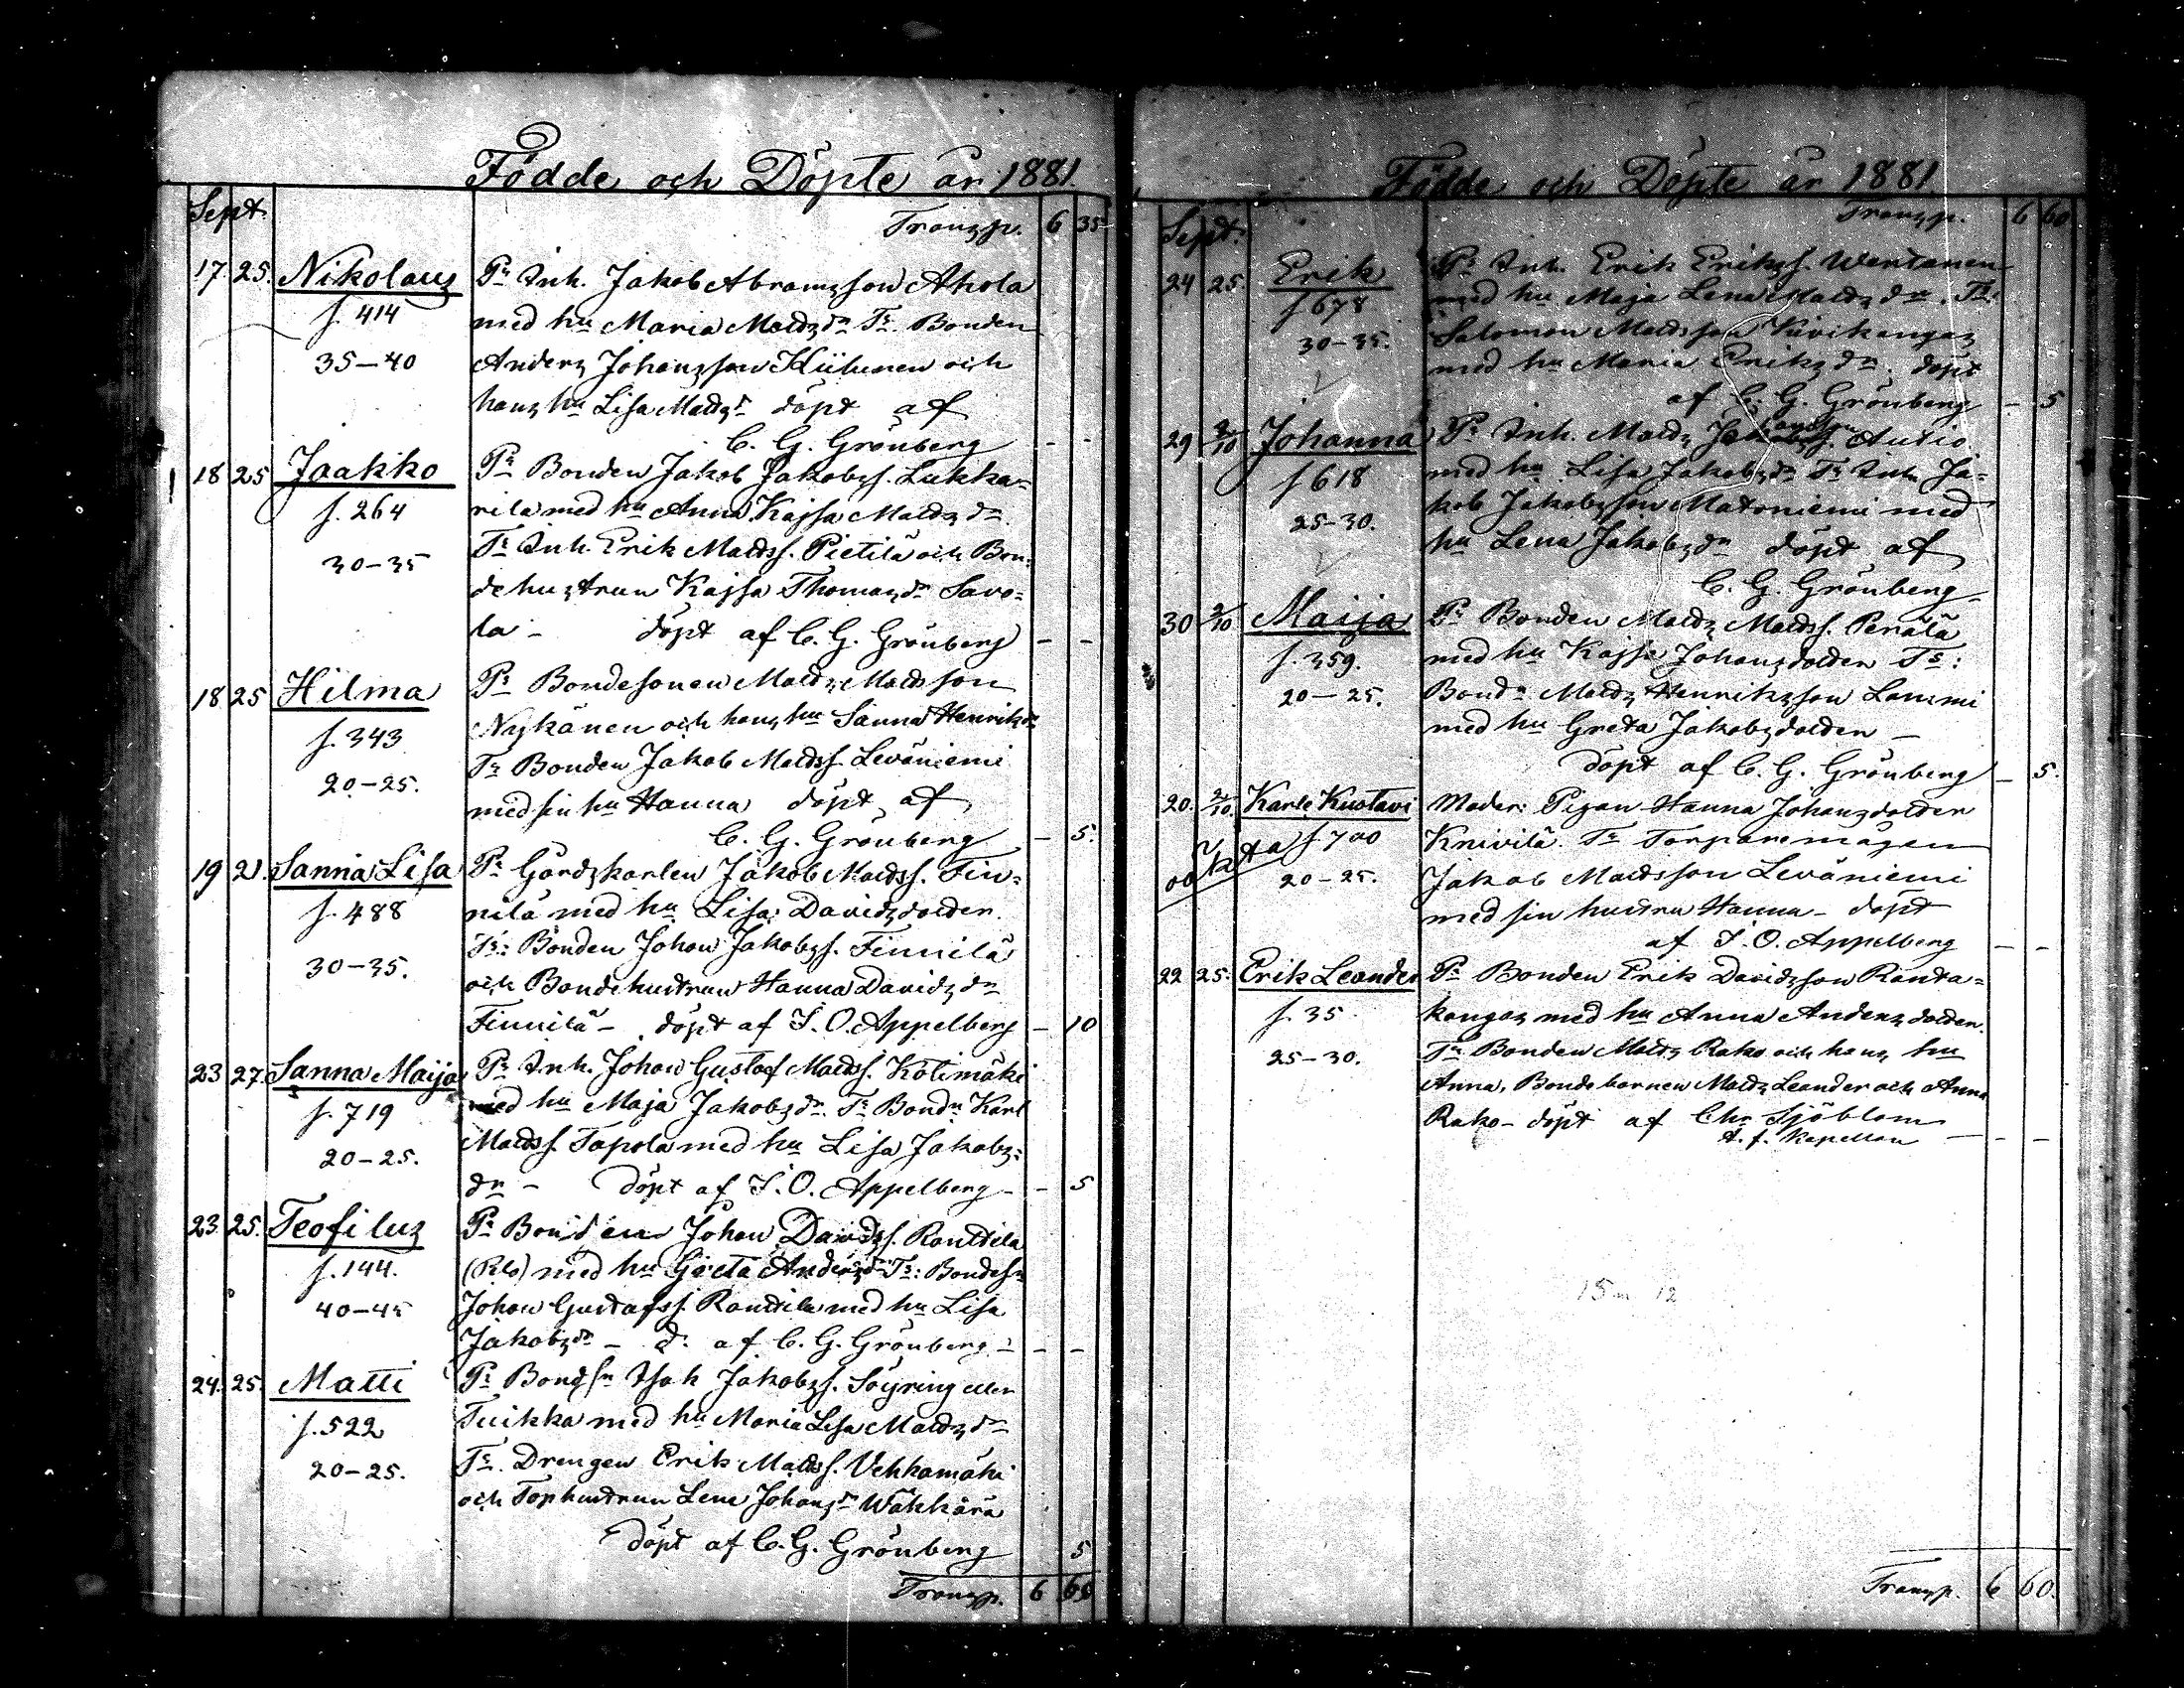 Födde och Döpte år 1881.
Sept.
Transp. 6 35
17. 25. Nikolaus Pr Inh. Jakob Abramsson Ahola
f. 414 med hu Maria Matsdr Tr. Bonden
35–40 Anders Johansson Kiilunen och
hans hu Lisa Matsdr döpt af
C. G. Grönberg – –
18 25 Jaakko Pr Bonden Jakob Jakobss. Lukka=
f. 264 rila med hu Anna Kajsa Matsdr
Tr Inh. Erik Matss. Pietilä och Bon=
30–35 dehustrun Kajsa Thomasdr Savo=
la – döpt af C. G. Grönberg – –
18 25 Hilma Pr Bondesonen Mats Matsson
f. 343 Nykänen och hans hu Sanna Henriksdr
Tr Bonden Jakob Matss. Leväniemi
20–25. med sin hu Hanna döpt af
C. G. Grönberg – 5.
19 21. Sanna Lisa Pr Gårdskarlen Jakob Matss. Fin=
f. 488 nilä med hu Lisa Davidsdotter.
Tr: Bonden Johan Jakobss. Finnilä
30–35. och Bondehustrun Hanna Davidsdr
Finnilä – döpt af I. O. Appelberg – 10
23 27. Sanna Maija Pr Inh. Johan Gustaf Matss. Kotimäki
f. 719 med hu Maja Jakobsdr. Tr Bondn Karl
20–25. Matss. Tapola med hu Lisa Jakobs=
dr – döpt af I. O. Appelberg – – 5
23. 25. Teofilus Pr Bonden Johan Davidss. Ranttila
f. 144. (Rlo) med hu Greta Andersdr Tr: Bondesn
40–45 Johan Gustafss. Ranttila med hu Lisa
Jakobsdr – d: af C. G. Grönberg – – –
24. 25. Matti Pr Bondsn Isak Jakobss. Söyring eller
f. 522 Tuikka med hu Maria Lisa Matsdr
20–25. Tr. Drengen Erik Matss. Vehkamäki
och Torphustrun Lena Johansdr Wäkkärä
döpt af C. G. Grönberg 5
Transp. 6 60
Födde och Döpte år 1881.
Transp. 6 60
Sept.
24 25 Erik Pr Inh. Erik Erikss. Wertanen
f 678 med hu Maja Lena Matsdr. Tr:
30–35. Salomon Matsson Kivikangas
med hu Maria Eriksdr. döpt
af C. G. Grönberg – 5
29 2/10 Johanna Pr Inh. Mats Autio
f 618 med hu Lisa Jakobsdr Tr Inh. Ja=
25–30. kob Jakobsson Matoniemi med
hu Lena Jakobsdr döpt af
C. G. Grönberg –
30 2/10 Maija Pr Bonden Mats Matss. Perälä
f. 359. med hu Kajsa Johansdotter Tr:
20–25. Bondn Mats Henriksson Lammi
med hu Greta Jakobsdotter –
döpt af C. G. Grönberg – 5.
20. 2/10. Karle Kustavi Moder: Pigan Hanna Johansdotter
oäkta f 700 Knivilä. Tr Torparemågen
20–25. Jakob Matsson Leväniemi
med sin hustru Hanna – döpt
af I. O. Appelberg – –
22 25. Erik Leander Pr Bonden Erik Davidsson Ranta=
f. 35 kangas med hu Anna Andersdotter.
25–30. Tr Bonden Mats Rako och hans hu
Anna, Bondebarnen Mats Leander och Anna
Rako – döpt af Chr Sjöblom
t. f. Kapellan – – –
15 m 12
Transp. 6 60.